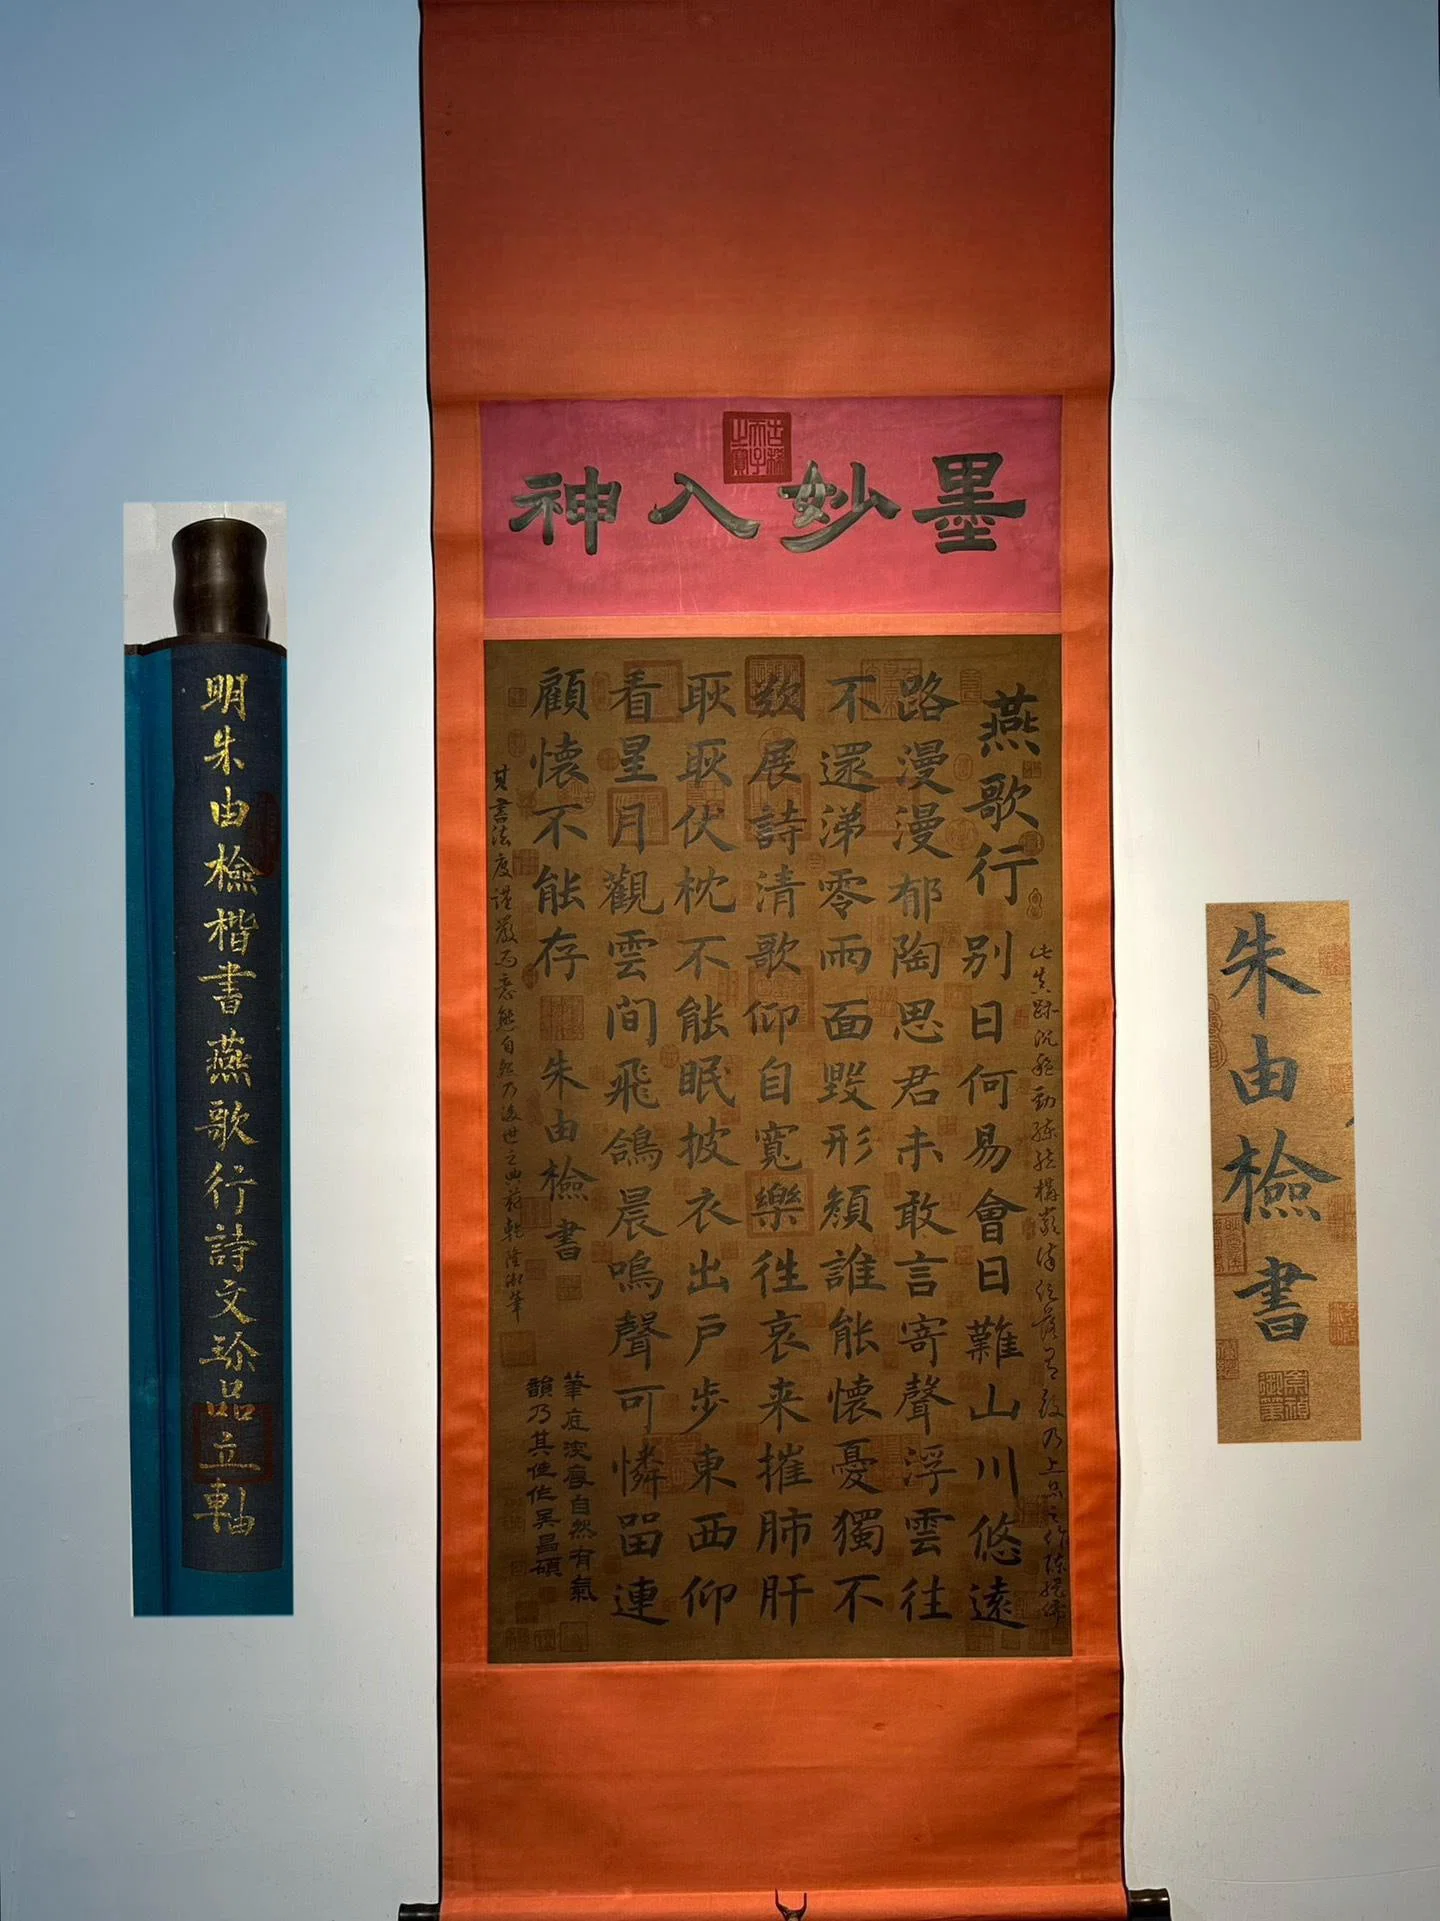 墨妙入神
古稀天子之寶
燕歌行別日何易會日難山川悠遠
路漫漫郁陶思君未敢言寄聲浮雲往
不還涕零雨面毀形顏誰能懷憂獨不
歎展詩清歌仰自寬樂往哀来摧肺肝
耿耿伏枕不能眠披衣出戶步東西仰
看星月觀雲間飛鴿晨鳴聲可憐留連
顧懷不能存 朱由檢書
此真跡沉雄勁練結構嚴謹 有致乃上品之作陳繼儒
其書法度謹嚴而意態自然乃後世之典范乾隆御筆
筆底 自然有氣
韻乃其佳作吳昌碩
明朱由檢楷書燕歌行詩文珎品立軸
朱由檢書
崇禎御筆